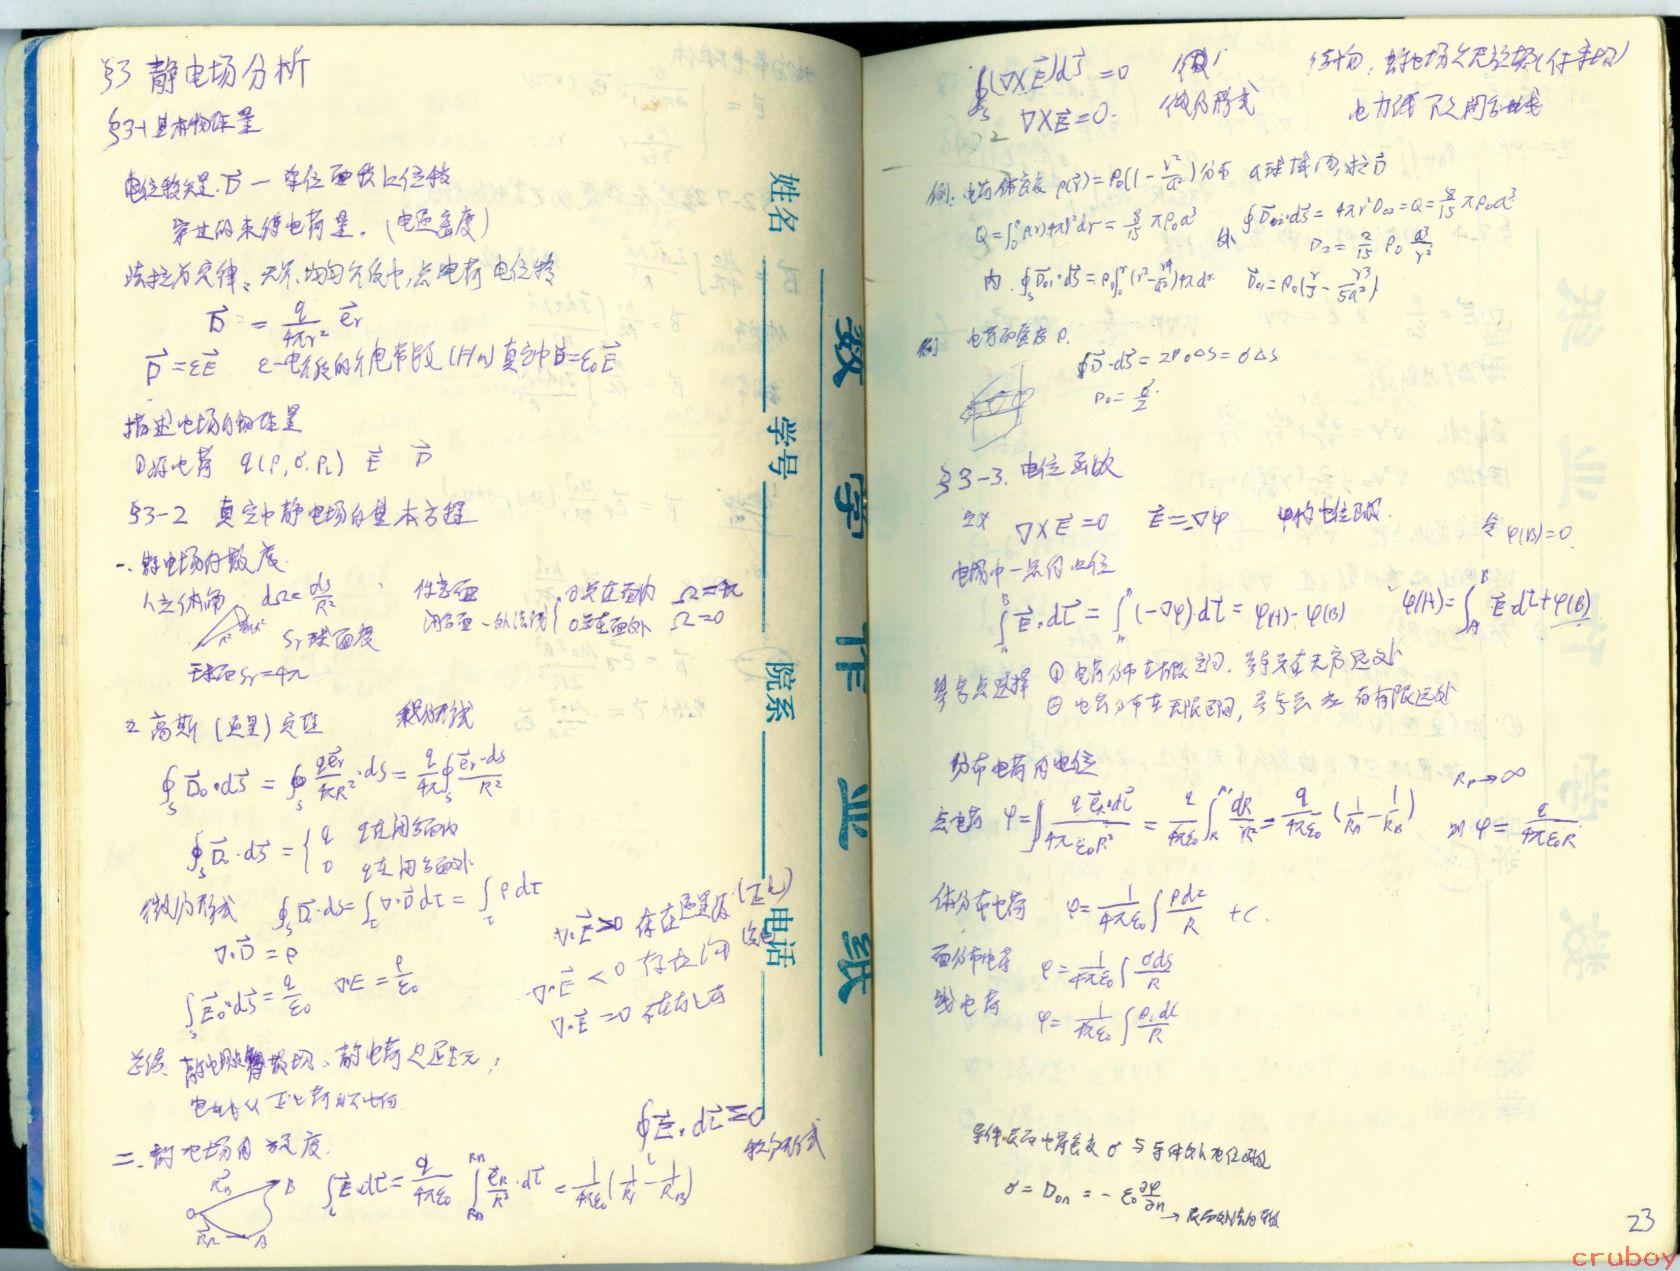 §3 静电场分析
§3-1 基本物理量
电位移矢量 D⃗ — 单位面积上位移
穿过的束缚电荷量。(电通密度)
法拉第定律: 无限均匀介质中,点电荷电位移
D⃗ = q/4πr² e⃗r
D⃗ = εE⃗ ε—电介质的介电常数 (F/m) 真空中 D⃗=ε₀E⃗
描述电场的物理量
①源电荷 q(ρ, σ, ρL) E⃗ D⃗
§3-2 真空中静电场的基本方程
一. 静电场的散度
1. 立体角 dΩ = ds/R² 任意面
闭合面 — 外法线 { 0点在面内 Ω=4π
0点在面外 Ω=0
Sr 球面度
球面 Sr=4π
2 高斯(通量)定理 积分形式
∮s D⃗₀·dS⃗ = ∮s q e⃗r/4πR² ·dS = q/4π ∮s e⃗r·ds/R²
∮s D⃗·dS⃗ = { q q在闭合面内
0 q在闭合面外
微分形式 ∮s D⃗·dS = ∫τ ∇·D⃗ dτ = ∫τ ρ dτ
∇·D⃗ = ρ
∫s E⃗₀·dS⃗ = q/ε₀ ∇·E = ρ/ε₀
∇·E⃗ > 0 存在通量源 (正电)
∇·E⃗ < 0 存在
∇·E⃗ = 0 不存在
总结 静电场是有散场,静电荷是通量元;
二. 静电场的旋度
∮l E⃗·dl⃗ = 0
积分形式
∫l E⃗·dl⃗ = q/4πε₀ ∫ e⃗R/R² ·dl⃗ = 1/4πε₀ (1/RA − 1/RB)
∮s (∇×E⃗)dS⃗ = 0
∇×E⃗ = 0. 微分形式
结论: 静电场是无旋场(保守场)
电力线不是闭合曲线
例: 电荷体密度 ρ(r⃗) = ρ₀(1 − r²/a²) 分布 a球域 内外 D⃗
Q = ∫ ρ(r)4πr²dr = 8/15 πρ₀a³
外 ∮ D⃗₀₂·dS⃗ = 4πr²D₀₂ = Q = 8/15 πρ₀a³
D₂ = 2/15 ρ₀ a³/r²
内. ∮s D⃗₀₁·dS⃗ = ρ₀∫₀ʳ (r² − r⁴/a²)4π dr D⃗₀₁ = ρ₀(r/3 − r³/5a²)
例 电荷面密度 ρ.
∮ D⃗·dS = 2D₀ΔS = σΔS
D₀ = σ/2.
§3-3. 电位函数
定义 ∇×E⃗ = 0 E⃗ = −∇φ φ称电位函数. 令 φ(B)=0.
电场中一点的电位
∫ E⃗·dl⃗ = ∫ (−∇φ)·dl⃗ = φ(A) − φ(B) φ(A) = ∫ E⃗·dl⃗ + φ(B)
参考点选择 ① 电荷分布在有限空间. 参考点在无穷远处
② 电荷分布在无限空间, 参考点在有限远处
分布电荷的电位
RB→∞
点电荷 φ = ∫ q e⃗R·dl⃗/4πε₀R² = q/4πε₀ ∫ dR/R² = q/4πε₀ (1/RA − 1/RB) 则 φ = q/4πε₀R
体分布电荷 φ = 1/4πε₀ ∫ ρdτ/R + C.
面分布电荷 φ = 1/4πε₀ ∫ σds/R
线电荷 φ = 1/4πε₀ ∫ ρl dl/R
导体表面电荷密度 σ 与导体外电位函数
σ = D₀n = − ε₀ ∂φ/∂n
→ 表面外法向导数
23
姓名
学号
院系
电话
数学作业纸
cruboy